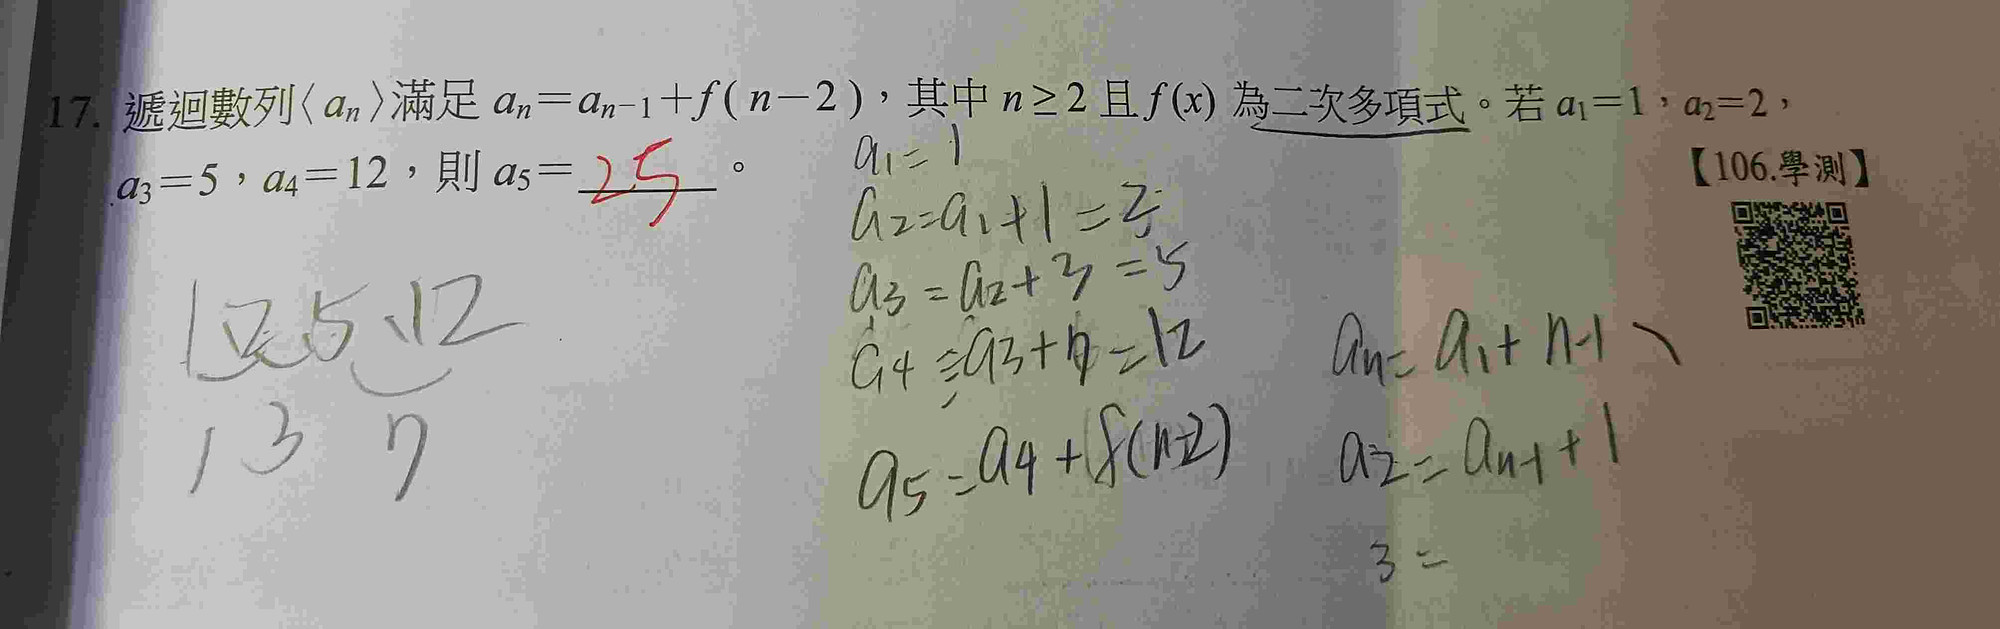 17. 遞迴數列〈an〉滿足 an=an−1+f(n−2),其中 n≥2 且 f(x) 為二次多項式。若 a1=1,a2=2,
a3=5,a4=12,則 a5=25。
【106.學測】
a1=1
a2=a1+1=2
a3=a2+3=5
a4=a3+7=12
a5=a4+f(n-2)
1 2 5 12
1 3 7
an=a1+n-1
a2=an-1+1
3=